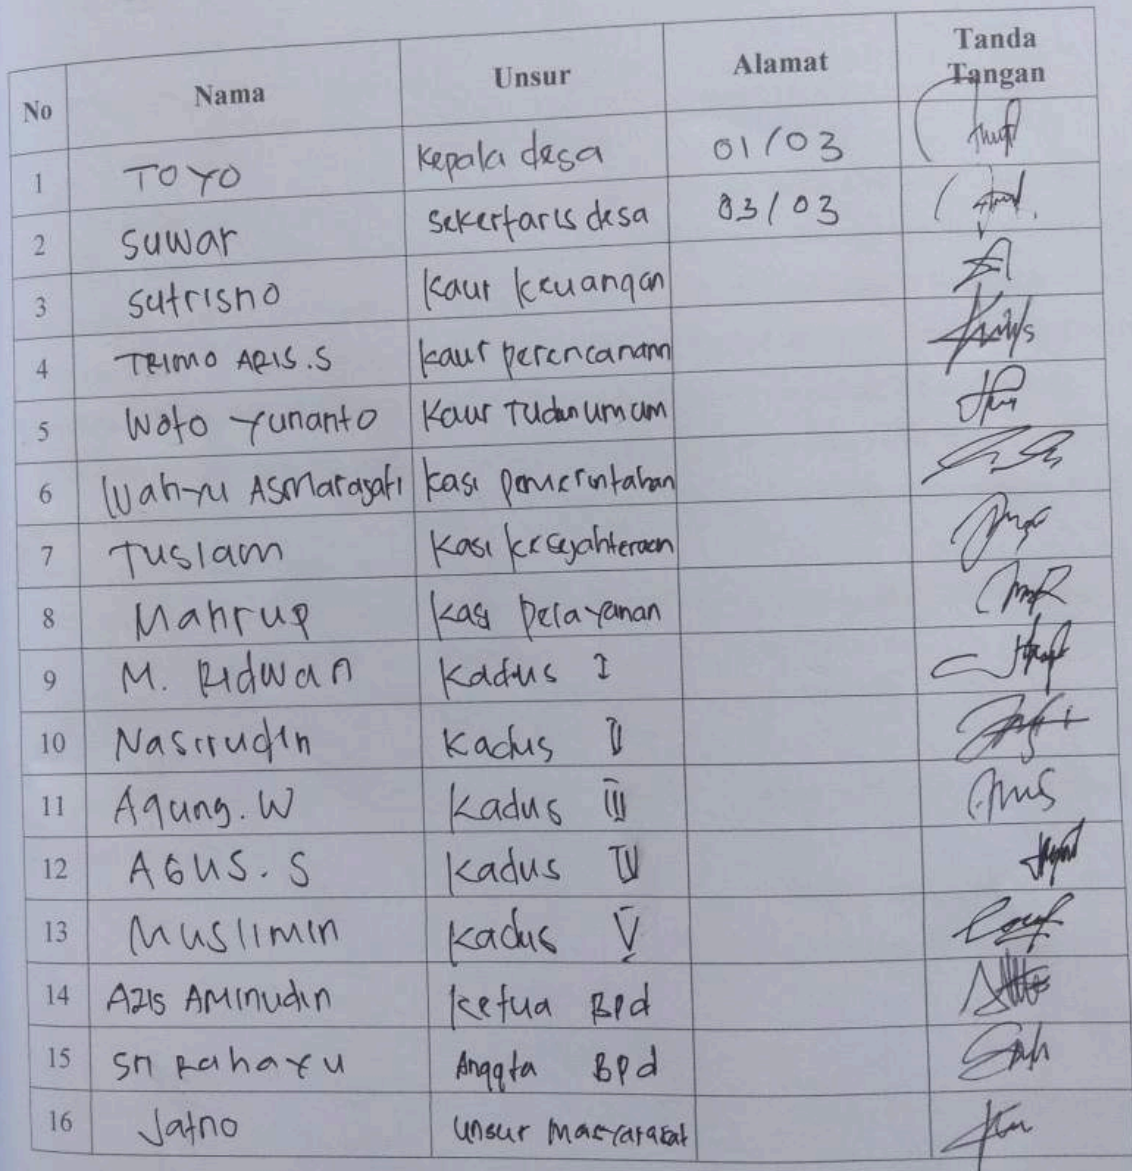 No Nama Unsur Alamat Tanda Tangan
1 TOYO Kepala desa 01/03
2 Suwar Sekertaris desa 03/03
3 Sutrisno Kaur keuangan
4 TRIMO ARIS.S Kaur perencanann
5 Woto Yunanto Kaur Tudan umum
6 Wahyu Asmaragati Kasi pemerintahan
7 Tuslam Kasi kesejahteraan
8 Mahrup Kasi pelayanan
9 M. Ridwan Kadus I
10 Nasirudin Kadus II
11 Agung. W Kadus III
12 AGUS. S Kadus IV
13 Muslimin Kadus V
14 Azis Aminudin Ketua Bpd
15 Sri Rahayu Anggta Bpd
16 Jatno Unsur Masyarakat